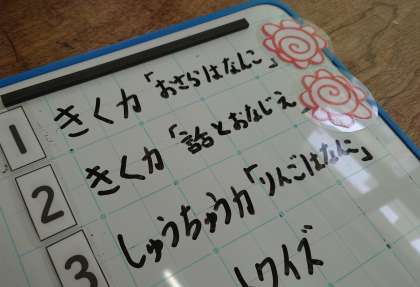 1 きく力「おさらはなんこ」
2 きく力「話とおなじえ」
3 しゅうちゅう力「りんごはなんこ」
クイズ